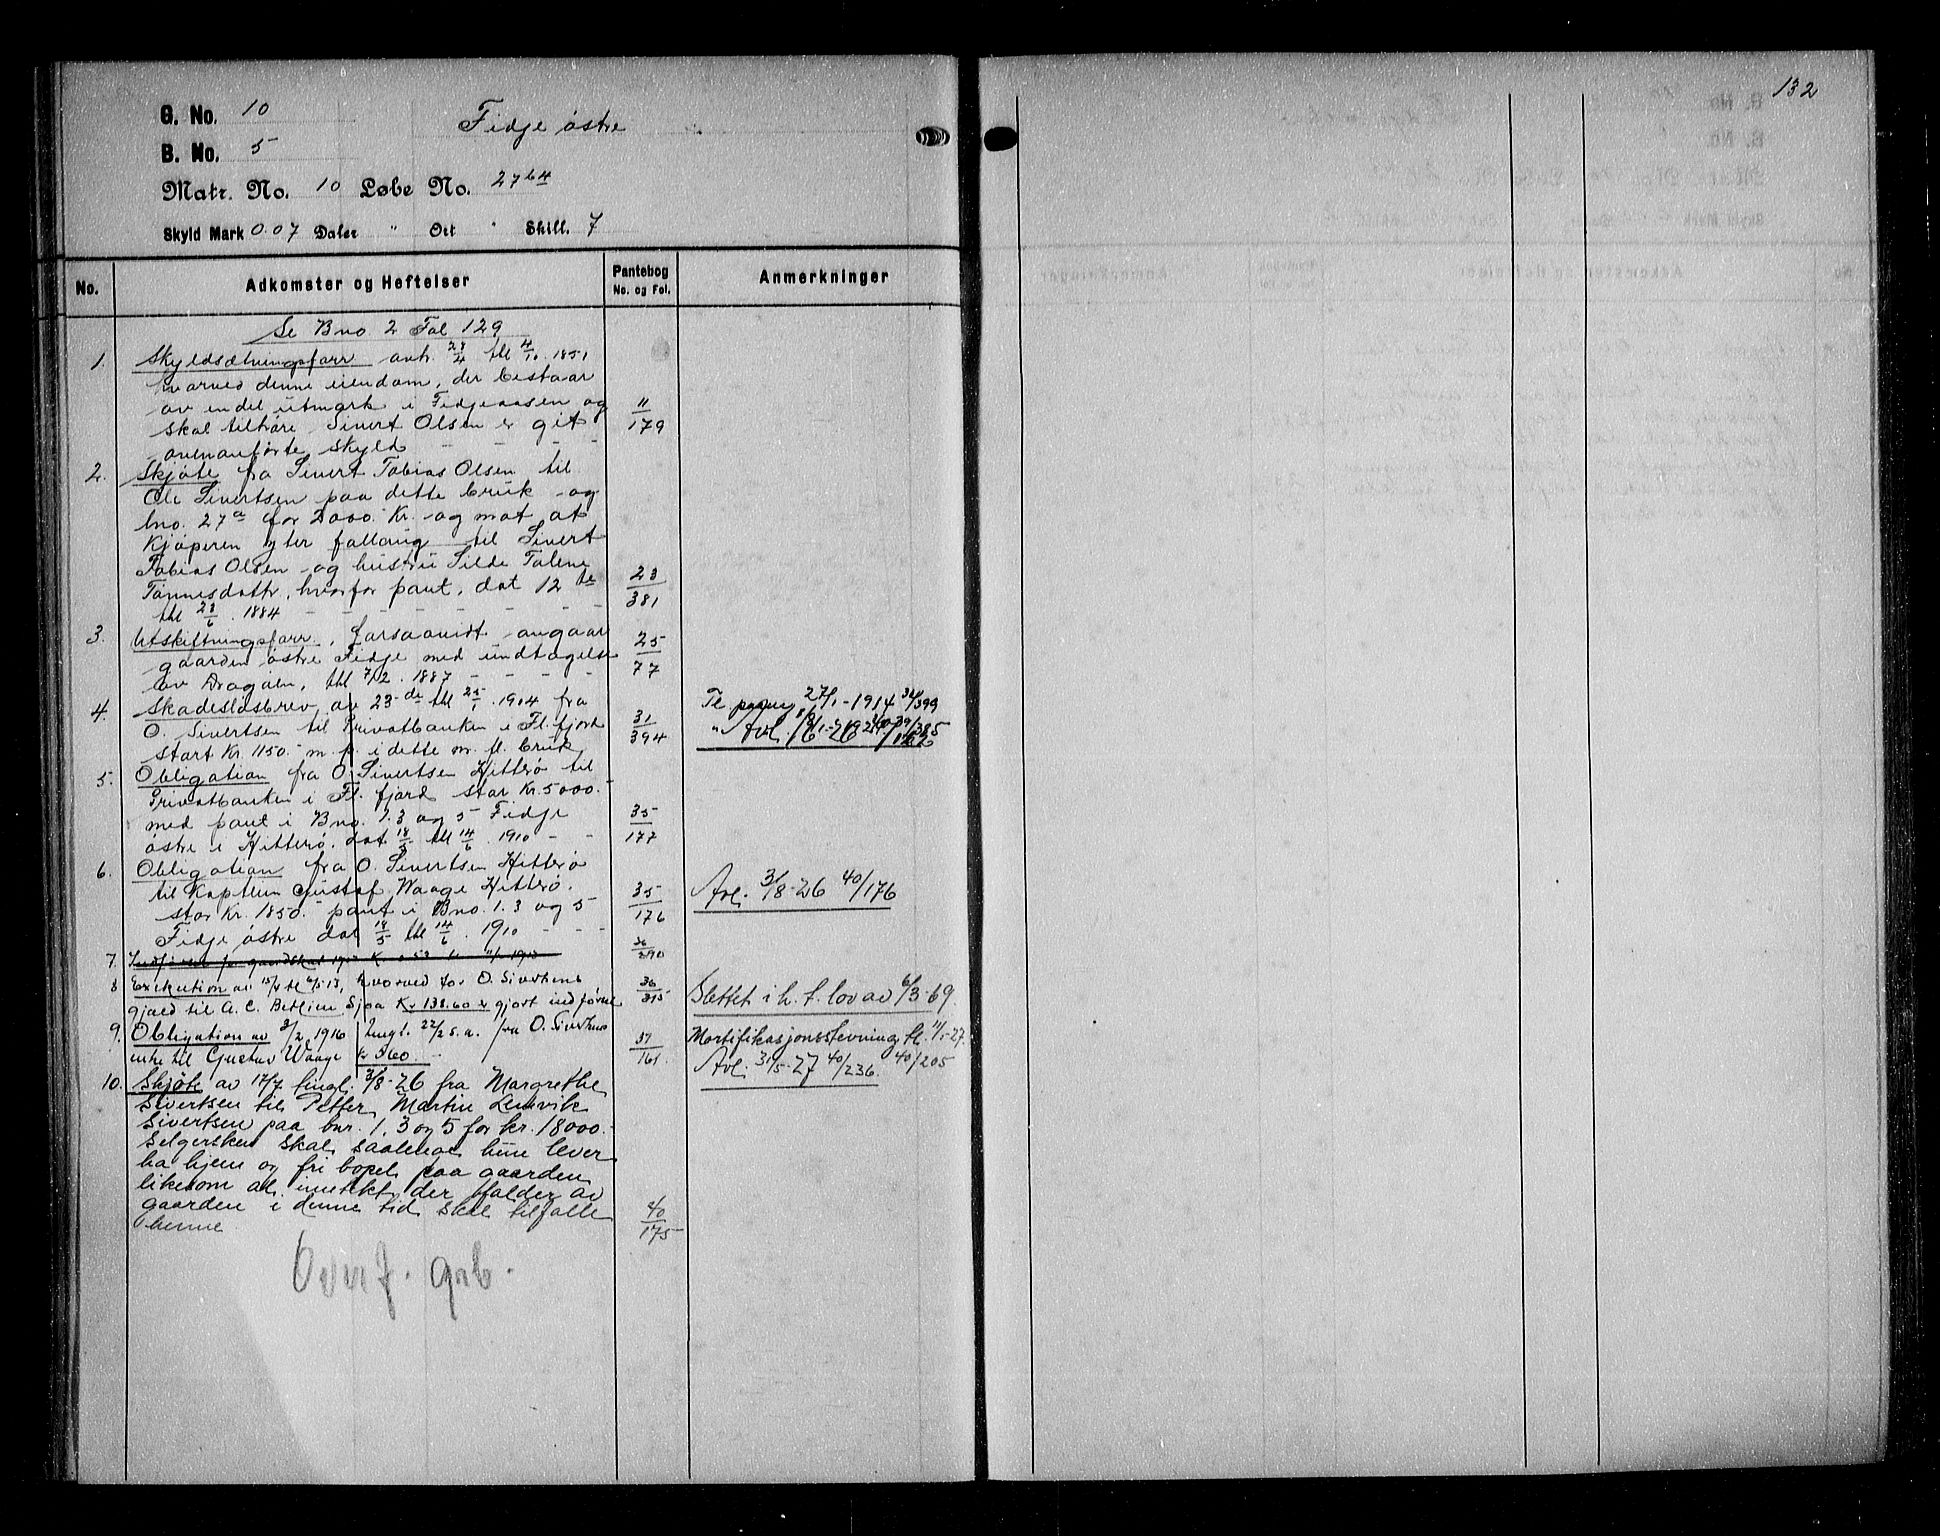 132
G. No. 10
Fidje østre
B. No. 5
Matr. No. 10 Løbe No. 27 b 4
Skyld Mark 0.07 Daler " Ort " Skill. 7
No. Adkomster og Heftelser Pantebog No. og Fol. Anmerkninger
Se Bno 2 Fol 129
1. Skyldsætningsforr. avh. 28/4 thl 4/10 1851
hvorved denne eiendom, der bestaar
av endel utmark i Fidjeaasen og
skal tilhøre Sivert Olsen er git 11/179
ovenanførte skyld
2. Skjøte fra Sivert Tobias Olsen til
Ole Sivertsen paa dette bruk og
lno. 27a for 2000 Kr. og mot at
Kjøperen yter føllaug til Sivert
Tobias Olsen og hustru Silde Talene
Tønnesdattr, hvorfor pant, dat 12te 23/381
thl 28/6 1884
3. Utskiftningsforr. forsaavidt angaar 25/77
gaarden østre Fidje med undtagelse
av Dragøen, thl 7/2 1887
4. Skadesløsbrev av 23de thl 25/1 1904 fra
O. Sivertsen til Privatbanken i Fl.fjord 31/394
stort Kr. 1150.- m. p. i dette m. fl. bruk
Tl. 27/1-1914 34/399
" Avl.
5. Obligation fra O. Sivertsen Hitterø til
Privatbanken i Fl. fjord stor Kr. 5000.-
med pant i Bno. 1. 3 og 5 Fidje 35/177
østre i Hitterø. dat 18/5 thl 14/6 1910
6. Obligation fra O. Sivertsen Hitterø
til Kaptein Gustaf Waage Hitterø. 35/176
stor Kr. 1850.- pant i Bno. 1. 3 og 5
Fidje østre dat 18/5 thl 14/6 1910
Avl. 3/8-26 40/176
7.
8 Exekution av 15/4 tl 6/5 13, hvorved for O. Sivertsens 36/315
gjæld til A. C. paa Kr 138.60 er gjort indførsel
Slettet i h. t. lov av 6/3-69.
9. Obligation av 3/2 1916 tingl. 22/2 s.a. fra O. Sivertsens 37/161
enke til Gustav Waage kr 360.-
Mortifikasjonsstevning tl. 11/1-27. 40/205
Avl. 31/5-27 40/236.
10. Skjøte av 17/7 tingl. 3/8-26 fra Margrethe
Sivertsen til Petter Martin Lervik
Sivertsen paa bnr. 1, 3 og 5 for kr. 18000.-
Selgersken skal saalenge hun lever
ha hjem og fri bopel paa gaarden
likesom al inntekt der falder av
gaarden i denne tid skal tilfalle 40/175
henne
Overf. grb.